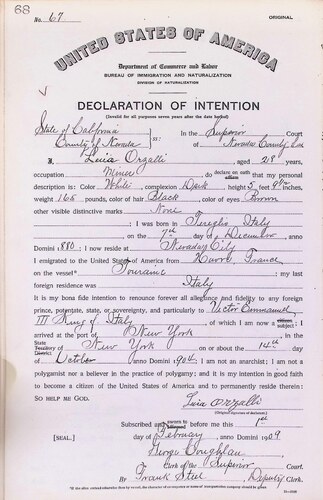 68
No. 67
ORIGINAL
UNITED STATES OF AMERICA
Department of Commerce and Labor
BUREAU OF IMMIGRATION AND NATURALIZATION
DIVISION OF NATURALIZATION
DECLARATION OF INTENTION
(Invalid for all purposes seven years after the date hereof)
State of California
County of Nevada
In the Superior Court
of Nevada County Cal
I, Luia Orzalli, aged 28 years,
occupation Miner, do declare on oath that my personal
description is: Color White, complexion Dark, height 5 feet inches,
weight 165 pounds, color of hair Black, color of eyes Brown
other visible distinctive marks None
I was born in Italy
on the 7th day of December, anno
Domini 1880; I now reside at Nevada City
I emigrated to the United States of America from Havre, France
on the vessel* Touraine; my last
foreign residence was Italy
It is my bona fide intention to renounce forever all allegiance and fidelity to any foreign
prince, potentate, state, or sovereignty, and particularly to Victor Emmanuel
III King of Italy, of which I am now a subject; I
arrived at the port of New York, in the
State of New York on or about the 14th day
of October, anno Domini 1904; I am not an anarchist; I am not a
polygamist nor a believer in the practice of polygamy; and it is my intention in good faith
to become a citizen of the United States of America and to permanently reside therein:
SO HELP ME GOD.
Luia Orzalli
(Original signature of declarant.)
Subscribed and sworn to before me this 1st
[SEAL.] day of February, anno Domini 1909
George Coughlan
Clerk of the Superior Court.
By Frank Steel, Deputy Clerk.